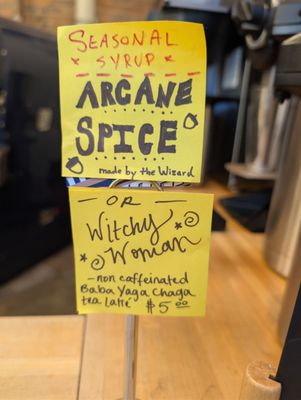 SEASONAL
SYRUP
ARCANE
SPICE
made by the Wizard
- OR -
Witchy
Woman
- non caffeinated
Baba Yaga Chaga
tea latte $5.00